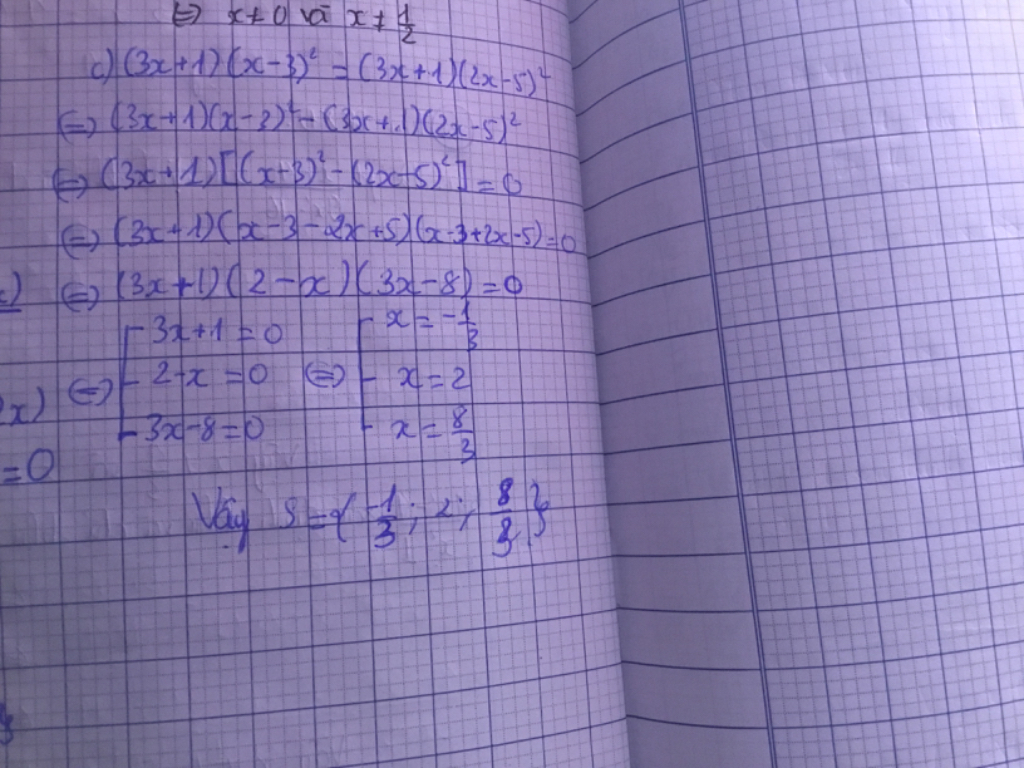 ⇔ x ≠ 0 và x ≠ 1/2
c) (3x+1)(x-3)² = (3x+1)(2x-5)²
⇔ (3x+1)(x-3)² - (3x+1)(2x-5)²
⇔ (3x+1)[(x-3)² - (2x-5)²] = 0
⇔ (3x+1)(x-3-2x+5)(x-3+2x-5)=0
⇔ (3x+1)(2-x)(3x-8)=0
3x+1=0 x = -1/3
x) ⇔ 2-x=0 ⇔ x=2
3x-8=0 x = 8/3
=0
Vậy S = { -1/3 ; 2 ; 8/3 }